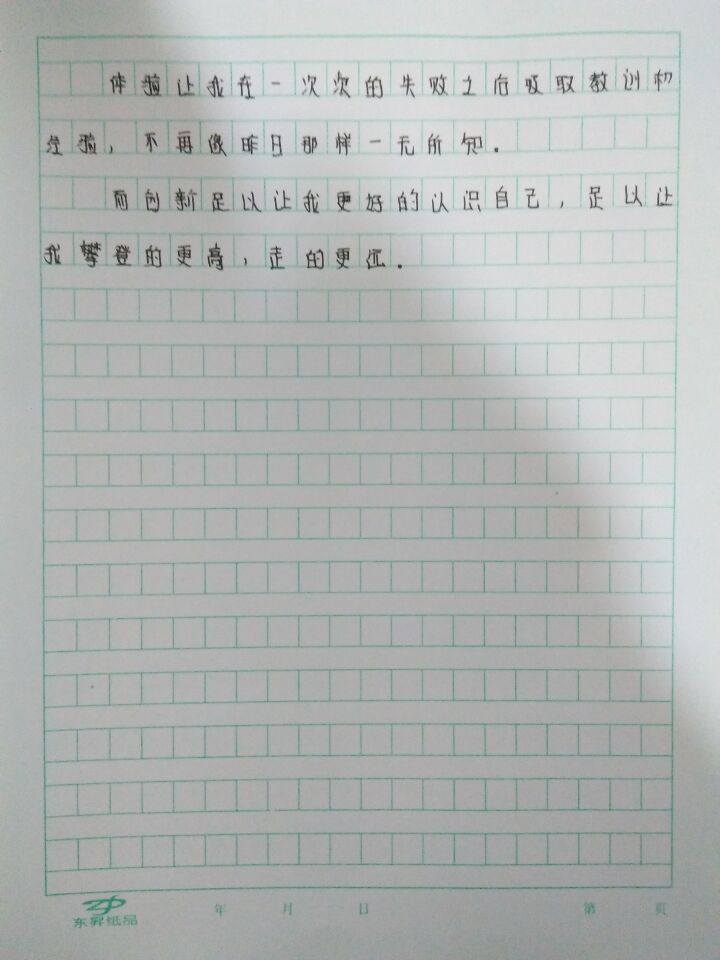 体验让我在一次次的失败之后吸取教训和
经验，不再像昨日那样一无所知。
而创新足以让我更好的认识自己，足以让
我攀登的更高，走的更远。
东昇纸品
年 月 日 第 页